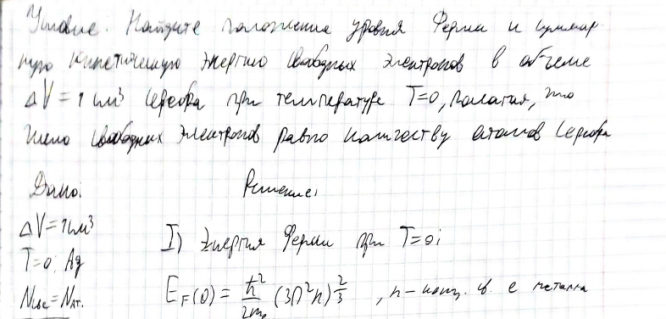 Условие. Найдите положение уровня Ферми и суммар
ную кинетическую энергию свободных электронов в объеме
ΔV = 1 см³ серебра при температуре T=0, полагая, что
число свободных электронов равно количеству атомов серебра
Дано: Решение:
ΔV=1см³
T=0 Ag
I) Энергия Ферми при T=0:
Nсв.=Nат.
E_F(0) = ħ²/2m₀ (3π²n)^(2/3), n - конц. св. e металла